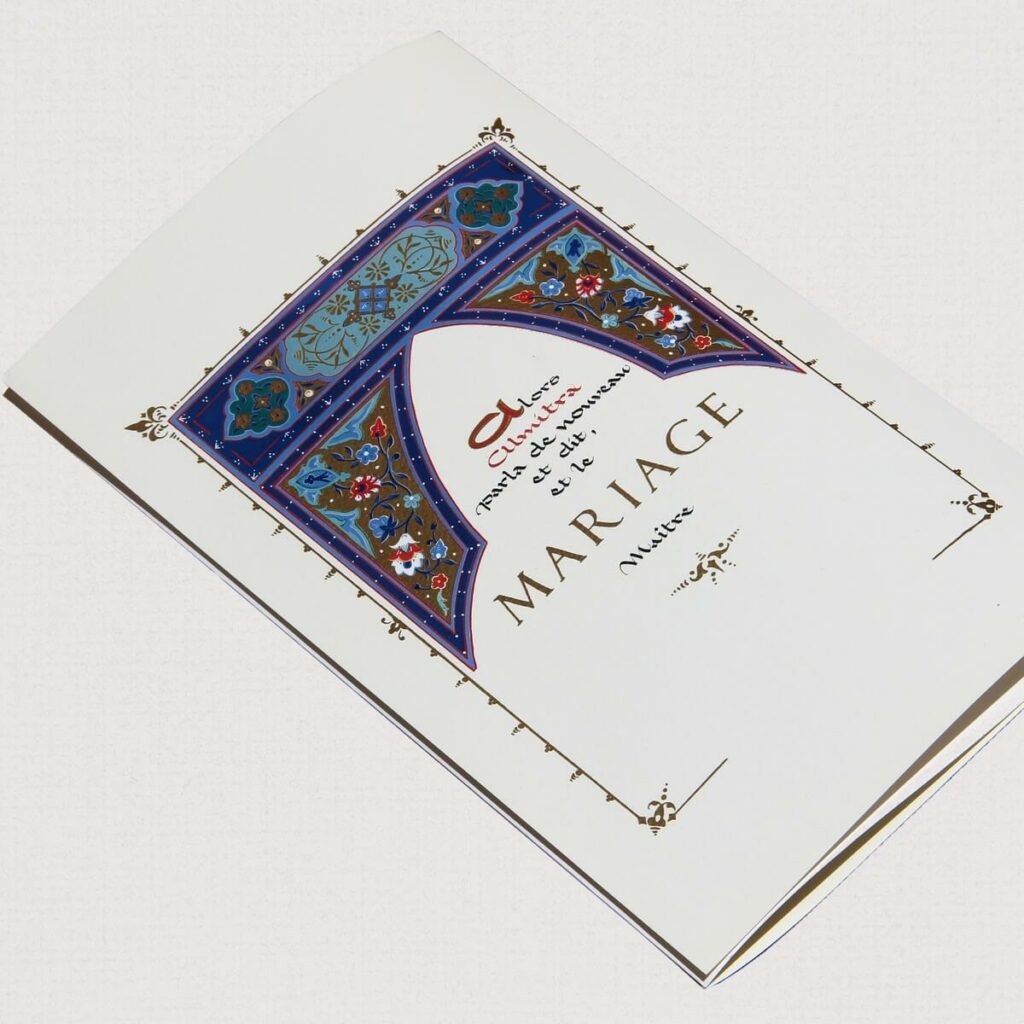 Alors
Almitra
Parla de nouveau
et dit,
et le
MARIAGE
Maitre